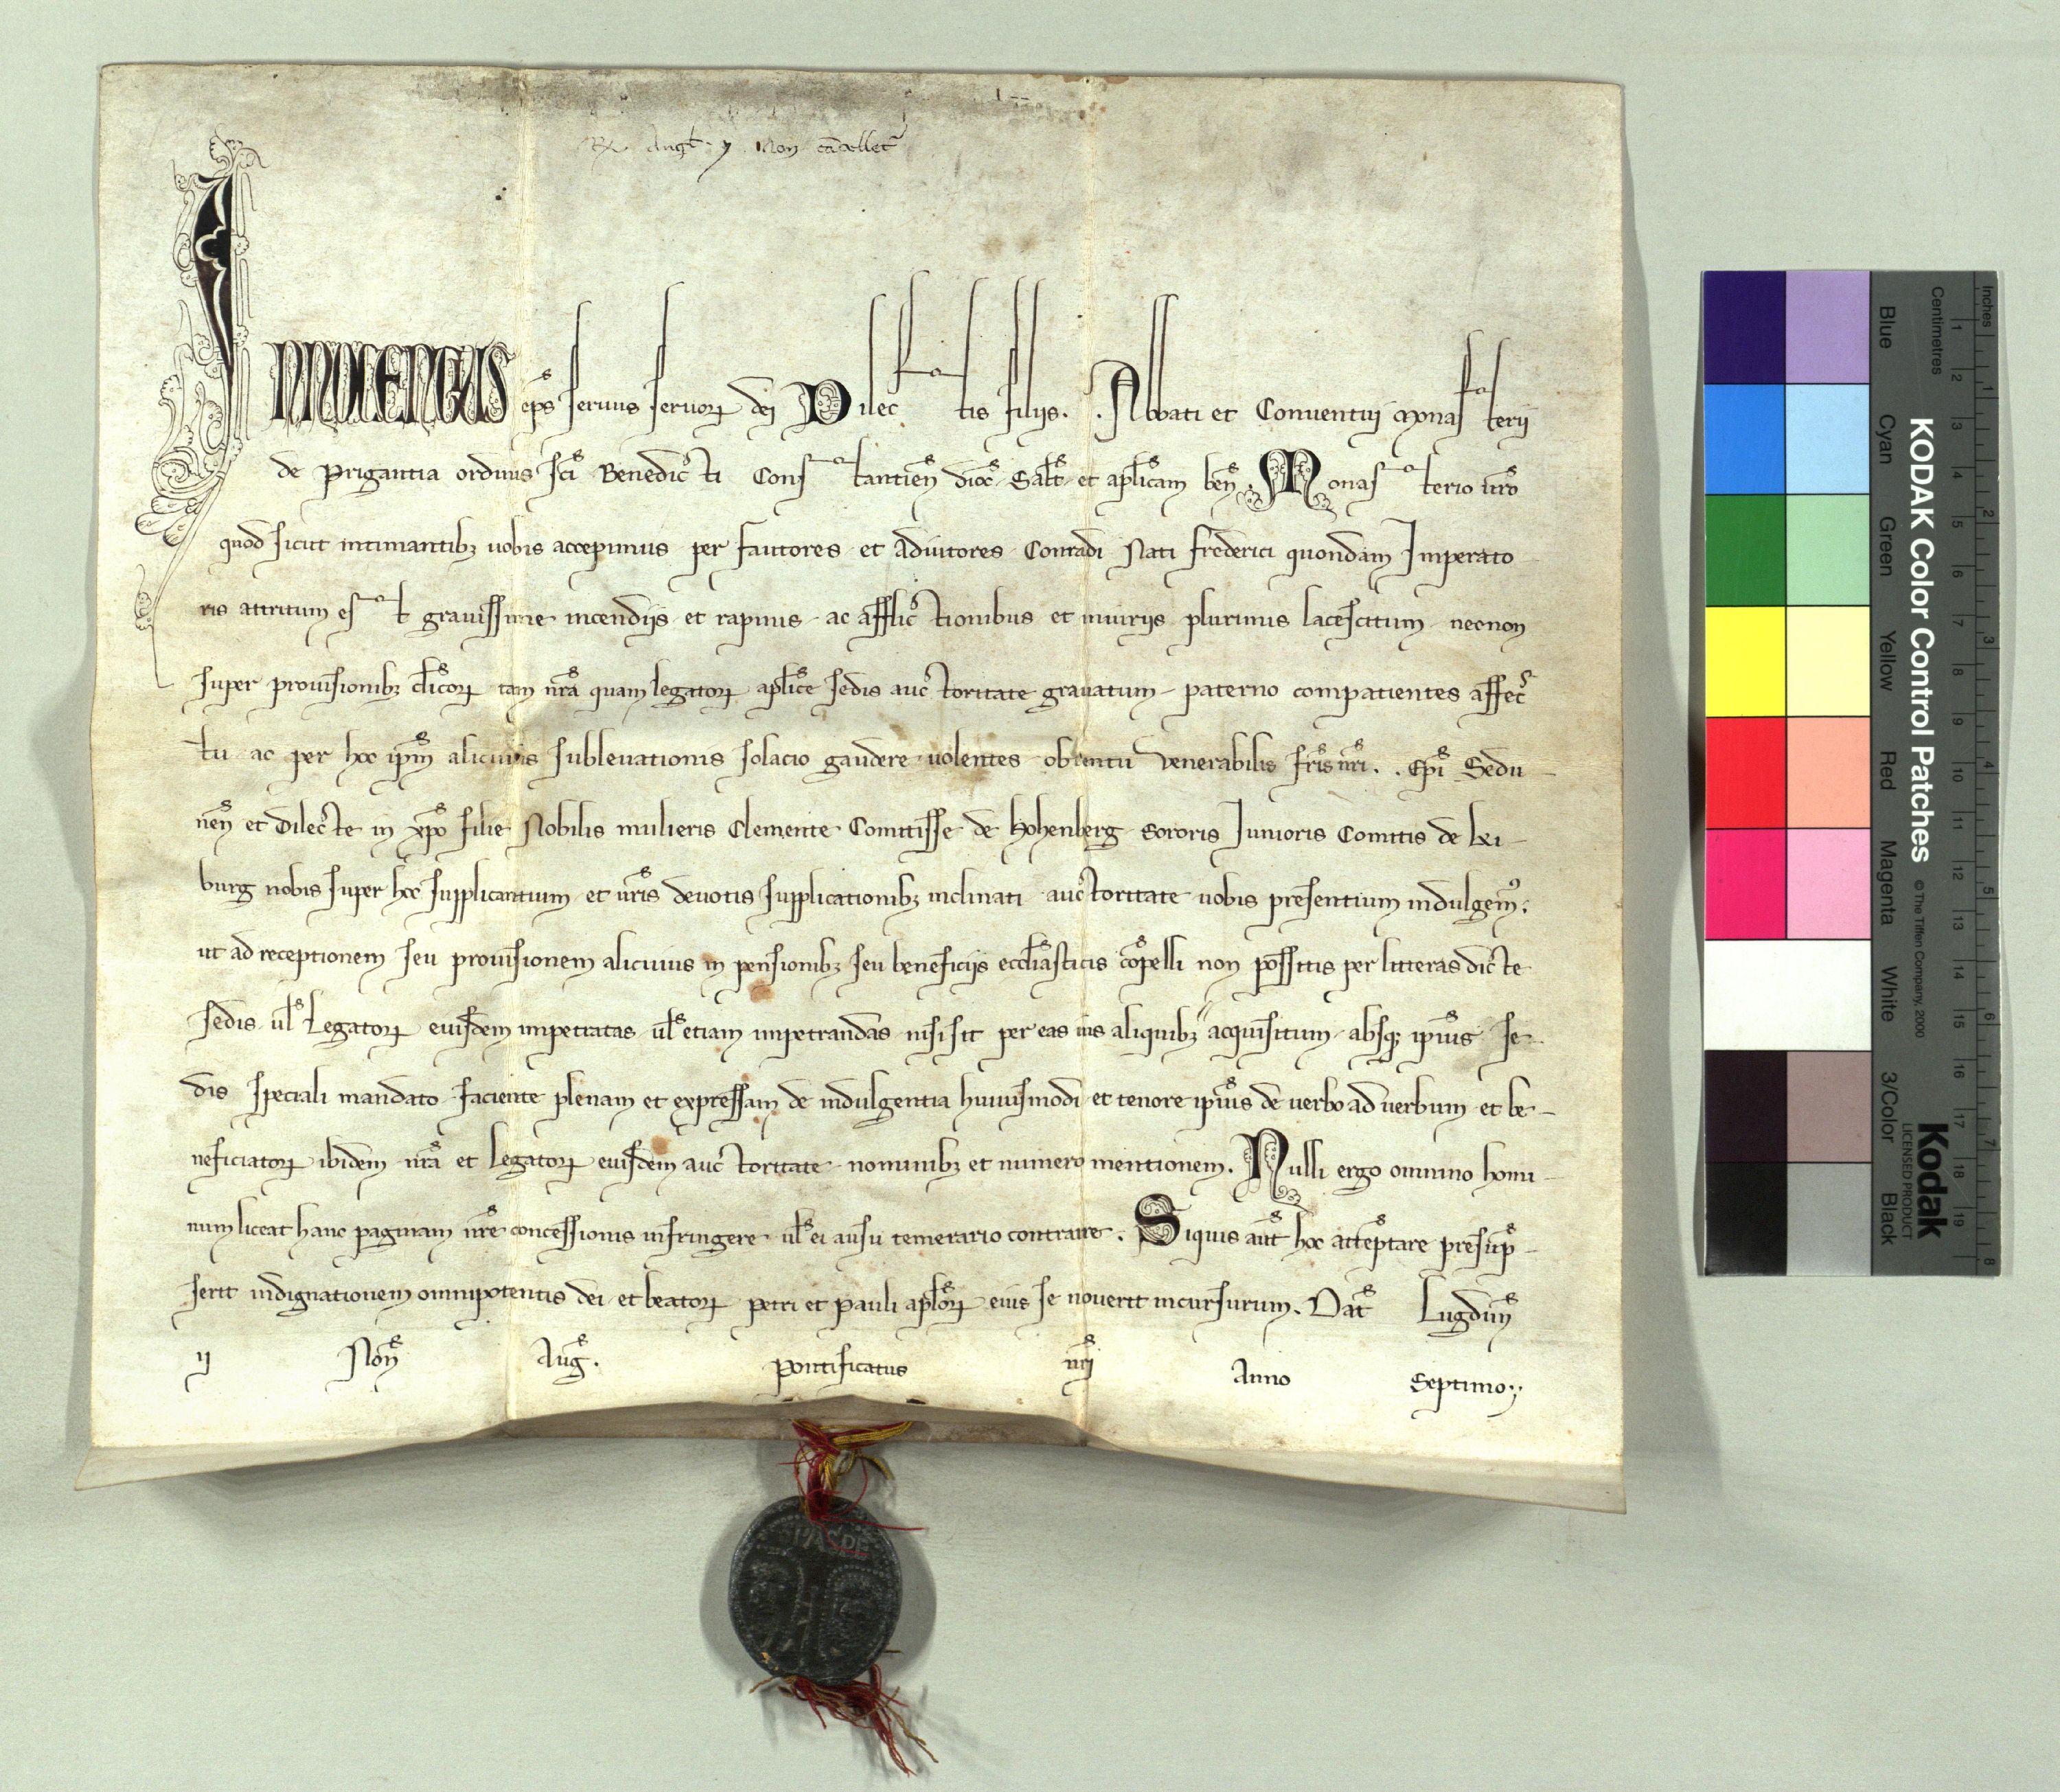 Innocentius ep̅s seruus seruoꝝ dei Dilectis filijs . . Abbati et Conuentuj monasterij
de Prigantia ordinis sc̅i Benedicti Constantien̅ dioc̅. Salt̅ et apl̅icam ben̅. Monasterio ur̅o
quod sicut intimantibꝫ uobis accepimus per fautores et adiutores Conradi Nati frederici quondam Imperato
ris attritum est grauissime incendijs et rapinis ac afflictionibus et iniurijs plurimis lacescitum necnon
super prouisionibꝫ cl̅icoꝝ tam nr̅a quam legatoꝝ apl̅ice sedis auctoritate grauatum paterno compatientes affec
tu ac per hoc ip̅m alicuius subleuationis solacio gaudere uolentes obtentu venerabilis fr̅is nr̅i . . Ep̅i Sedu
nen̅ et dilecte in xp̅o filie Nobilis mulieris Clemente Comitisse de Hohenberg sororis Iunioris Comitis de ki
burg nobis super hoc supplicantium et ur̅is deuotis supplicationibꝫ inclinati auctoritate uobis presentium indulgemꝰ.
ut ad receptionem seu prouisionem alicuius in pensionibꝫ seu beneficijs eccl̅iasticis co̅pelli non possitis per litteras dicte
sedis ul̅ Legatoꝝ eiusdem impetratas ul̅ etiam impetrandas nisi sit per eas ius aliquibꝫ acquisitum absqꝫ ip̅ius se
dis speciali mandato faciente plenam et expressam de indulgentia huiusmodi et tenore ip̅ius de uerbo ad uerbum et be
neficiatoꝝ ibidem nr̅a et legatoꝝ eiusdem auctoritate nominibꝫ et numero mentionem. Nulli ergo omnino homi
num liceat hanc paginam nr̅e concessionis infringere ul̅ ei ausu temerario contraire. Siquis aut̅ hoc atte̅ptare presu̅p
serit indignationem omnipotentis dei et beatoꝝ petri et pauli apl̅oꝝ eius se nouerit incursurum. Dat̅ Lugdun̅
ij Non̅ Aug̅. Pontificatus nr̅j Anno Septimo
SPASPE
KODAK Color Control Patches
© The Tiffen Company, 2000
Kodak
LICENSED PRODUCT
Inches 1 2 3 4 5 6 7 8
Centimetres 1 2 3 4 5 6 7 8 9 10 11 12 13 14 15 16 17 18 19
Blue Cyan Green Yellow Red Magenta White 3/Color Black